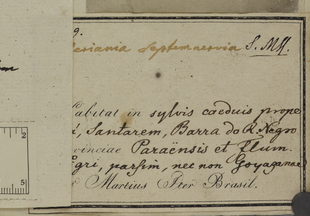 9.
esiania septemnervia S. MH.
Habitat in sylvis caeduis prope
Santarem, Barra do R. Negro
vinciae Paraënsis et flum.
egri, passim, nec non Goyazanae
Martius Iter Brasil.
2
5